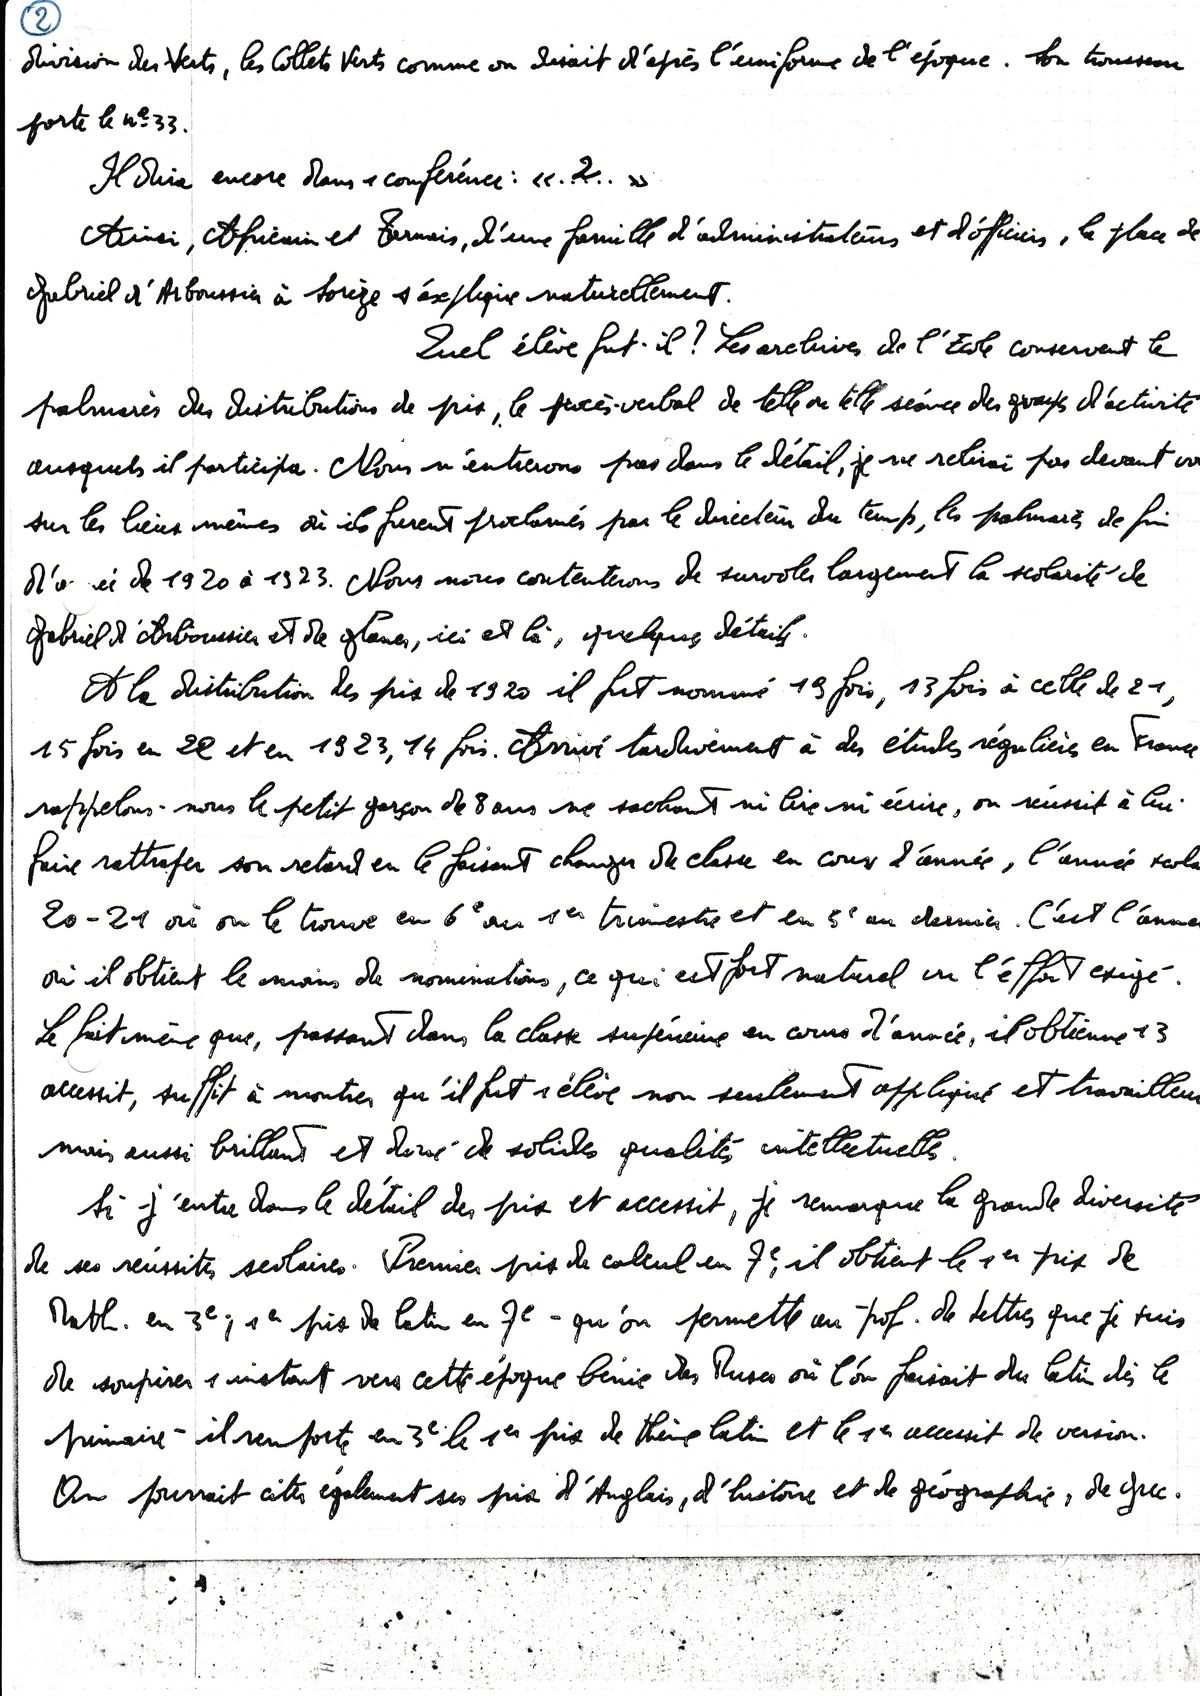 2
division des Verts, les Collets Verts comme on disait d'après l'uniforme de l'époque. Son trousseau
porte le n° 33.
Il dira encore dans sa conférence : «..2.. »
Ainsi, Africain et Tarnais, d'une famille d'administrateurs et d'officiers, la place de
Gabriel d'Arboussier à Sorèze s'explique naturellement.
Quel élève fut-il ? Les archives de l'Ecole conservent le
palmarès des distributions de prix, le procès-verbal de telle ou telle séance des groupes d'activité
auxquels il participa. Nous n'entrerons pas dans le détail, je ne relirai pas devant vo
sur les lieux mêmes où ils furent proclamés par le directeur du temps, les palmarès de fin
d'a ée de 1920 à 1923. Nous nous contenterons de survoler largement la scolarité de
Gabriel d'Arboussier et de glaner, ici et là, quelques détails.
A la distribution des prix de 1920 il fut nommé 19 fois, 13 fois à celle de 21,
15 fois en 22 et en 1923, 14 fois. Arrivé tardivement à des études régulières en France
rappelons-nous le petit garçon de 8 ans ne sachant ni lire ni écrire, on réussit à lui
faire rattraper son retard en le faisant changer de classe en cours d'année, l'année scola
20-21 où on le trouve en 6e au 1er trimestre et en 5e au dernier. C'est l'année
où il obtient le moins de nominations, ce qui est fort naturel vu l'effort exigé.
Le fait même que, passant dans la classe supérieure en cours d'année, il obtienne 13
accessit, suffit à montrer qu'il fut 1 élève non seulement appliqué et travailleur
mais aussi brillant et doué de solides qualités intellectuelles.
Si j'entre dans le détail des prix et accessit, je remarque la grande diversité
de ses réussites scolaires. Premier prix de calcul en 7e, il obtient le 1er prix de
Math. en 3e ; 1er prix de latin en 7e - qu'on permette au prof. de Lettres que je suis
de soupirer 1 instant vers cette époque bénie des Muses où l'on faisait du latin dès le
primaire - il remporte en 3e le 1er prix de thème latin et le 1er accessit de version.
On pourrait citer également ses prix d'Anglais, d'histoire et de géographie, de grec.